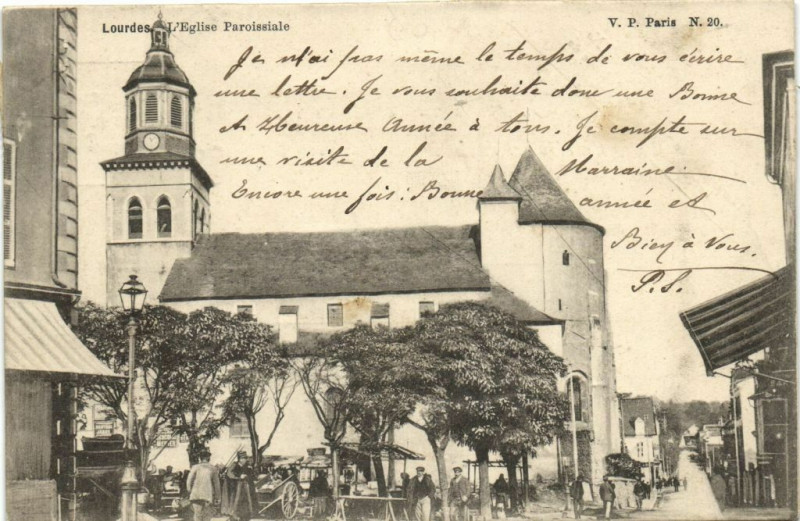 Lourdes. L'Eglise Paroissiale
V. P. Paris N. 20.
Je n'ai pas même le temps de vous écrire
une lettre. Je vous souhaite donc une Bonne
et Heureuse Année à tous. Je compte sur
une visite de la Marraine.
Encore une fois : Bonne année et
Bien à Vous.
P.S.